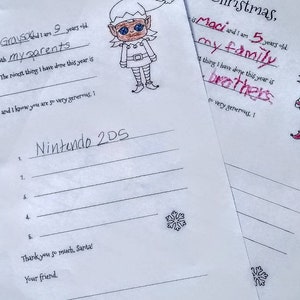 Graysen and I am 9 years old.
my parents
The nicest thing I have done this year is
and I know you are so very generous, I
1. Nintendo 2DS
2.
3.
4.
5.
Thank you so much, Santa!
Your friend,
Christmas,
is Maci and I am 5 years
my family
thing I have done this year is
brothers
you are so very generous, I